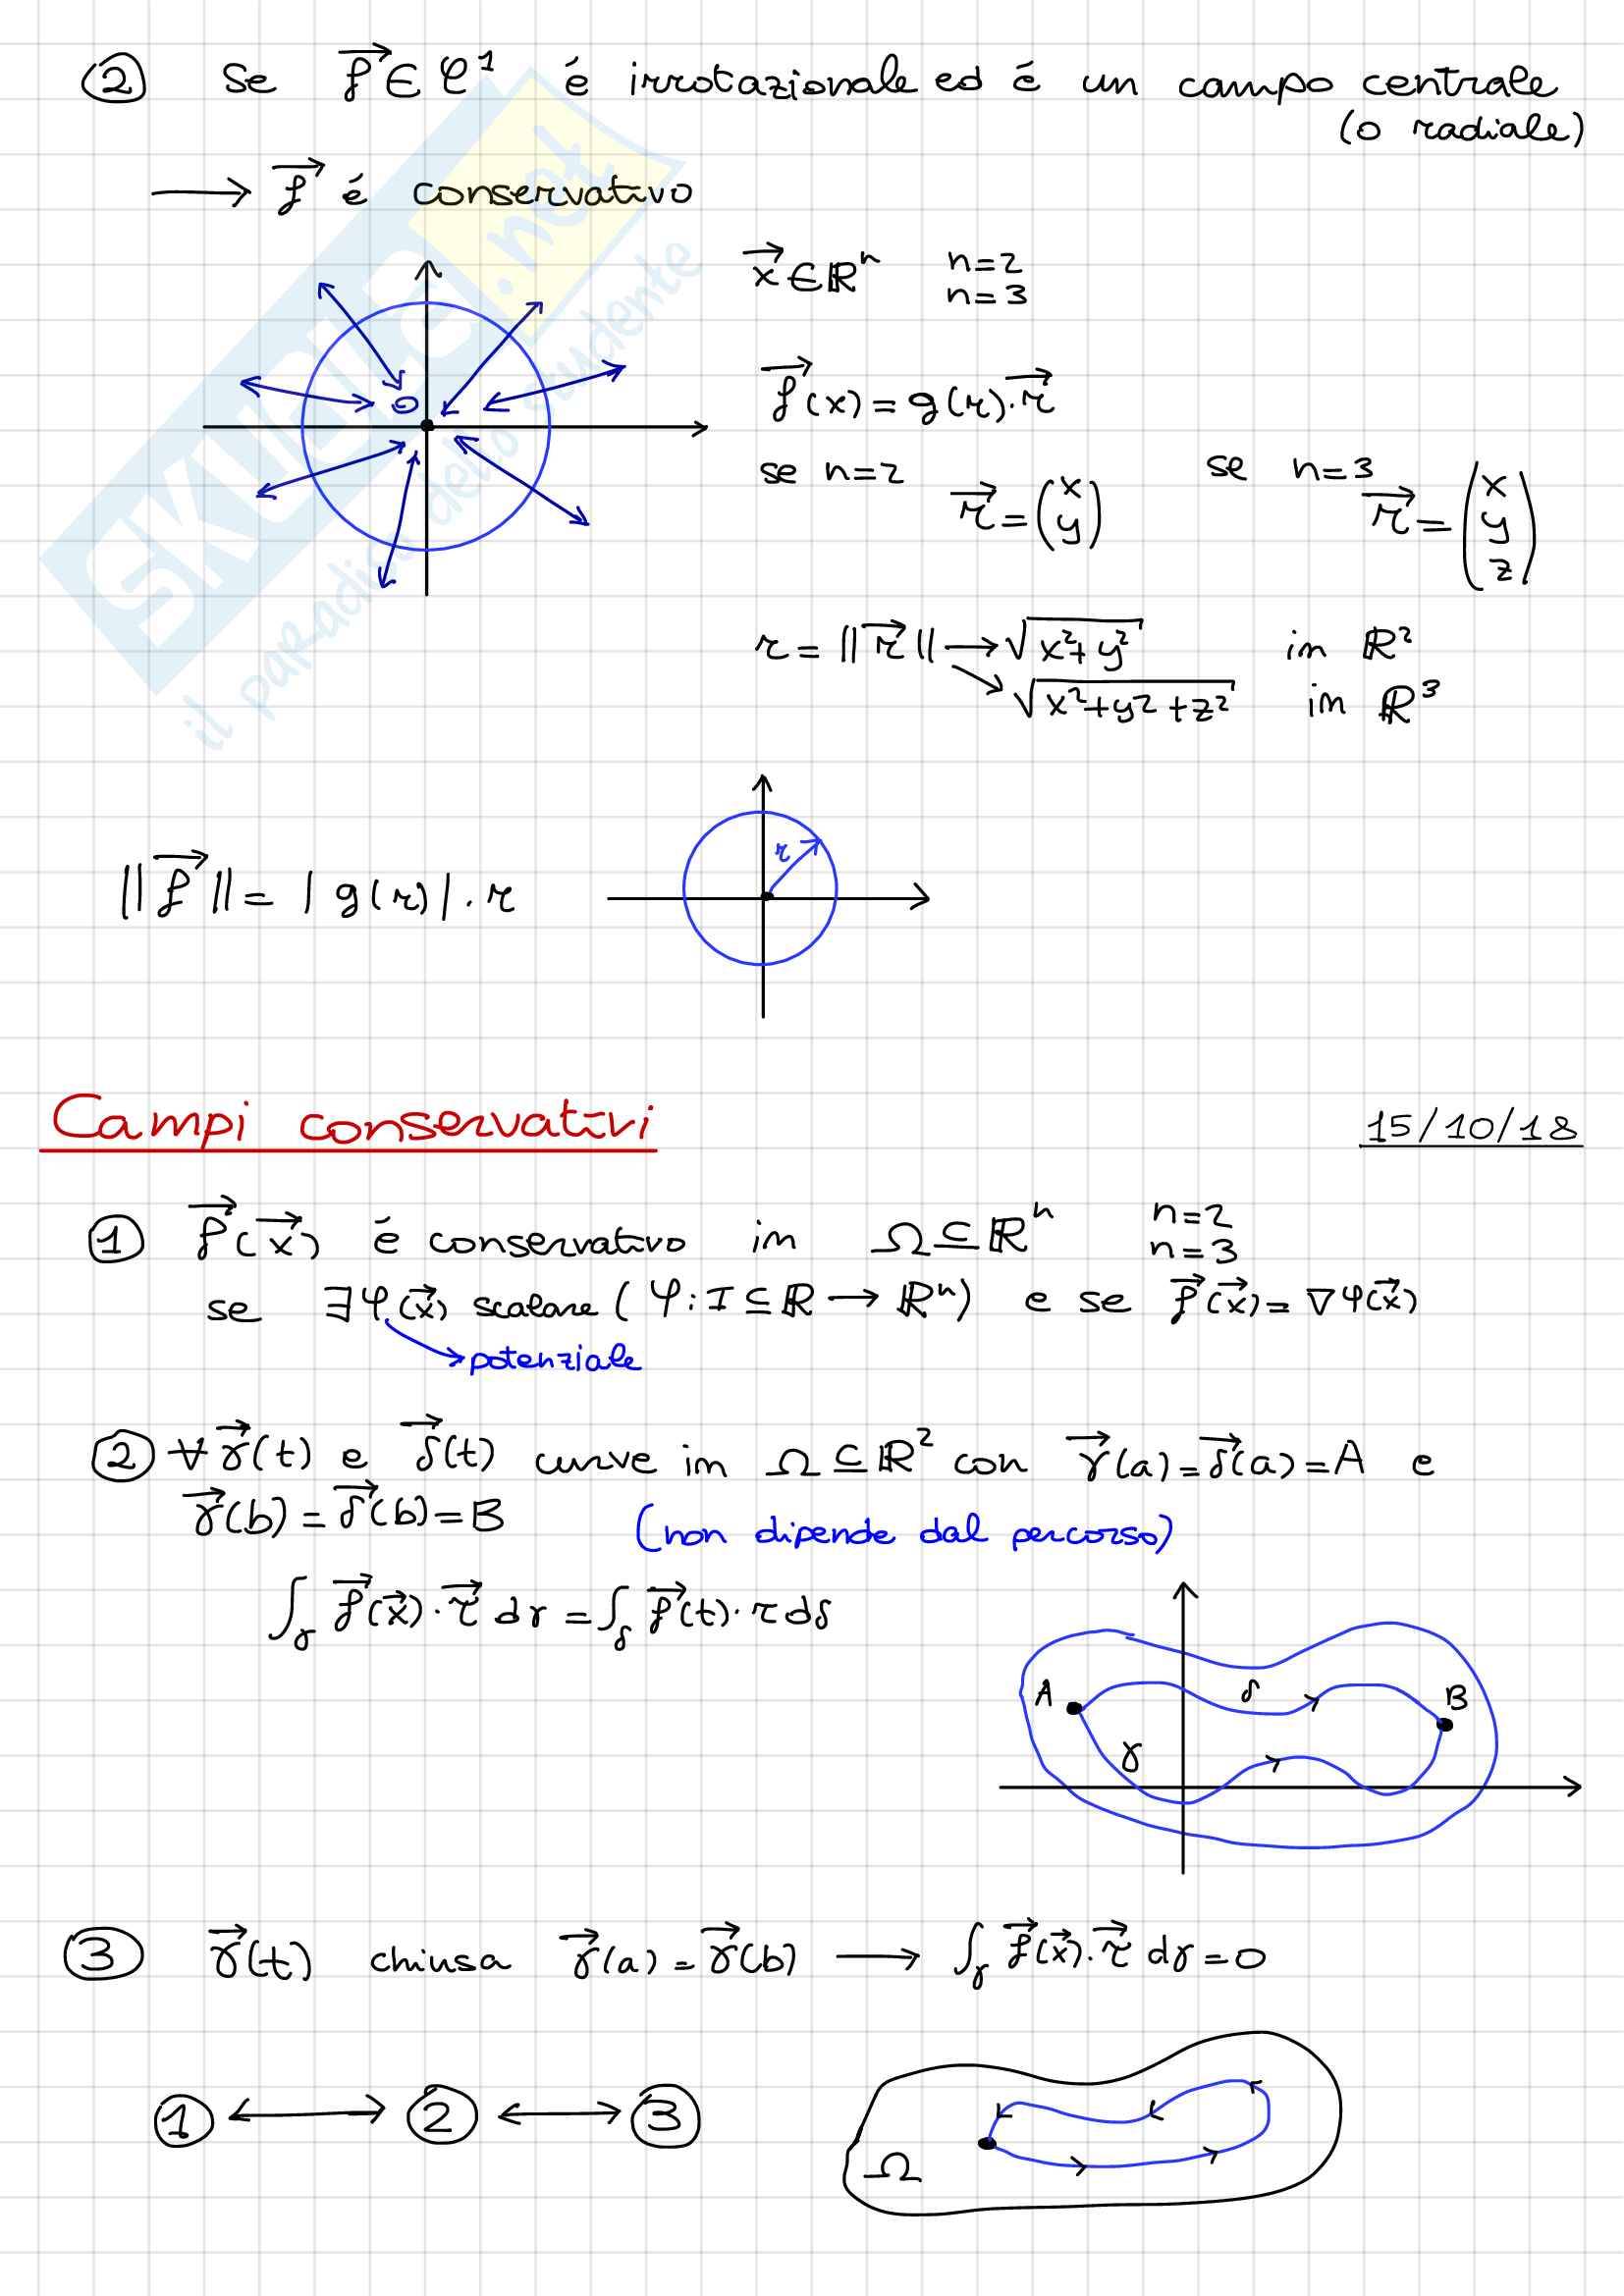 ② se f⃗ ∈ C¹ é irrotazionale ed é un campo centrale
(o radiale)
⟶ f⃗ é conservativo
x⃗ ∈ ℝⁿ n=2
n=3
0
f⃗(x) = g(r)·r⃗
se n=2 r⃗ = (x y)
se n=3 r⃗ = (x y z)
r = ||r⃗|| → √x²+y² in ℝ²
↘ √x²+y²+z² in ℝ³
||f⃗|| = |g(r)|·r
r
Campi conservativi 15/10/18
① f⃗(x⃗) é conservativo in Ω⊆ℝⁿ n=2
n=3
se ∃φ(x⃗) scalare (φ: I⊆ℝ → ℝⁿ) e se f⃗(x⃗) = ∇φ(x⃗)
potenziale
② ∀ γ⃗(t) e δ⃗(t) curve in Ω⊆ℝ² con γ⃗(a)=δ⃗(a)=A e
γ⃗(b)=δ⃗(b)=B (non dipende dal percorso)
∫γ f⃗(x⃗)·τ⃗ dγ = ∫δ f⃗(t)·τ dδ
A δ B
γ
③ γ⃗(t) chiusa γ⃗(a)=γ⃗(b) ⟶ ∫γ f⃗(x⃗)·τ⃗ dγ=0
① ⟷ ② ⟷ ③
Ω
SKUOLA.net
il paradiso dello studente